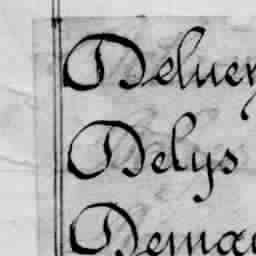 Deluery
Delys
Demac